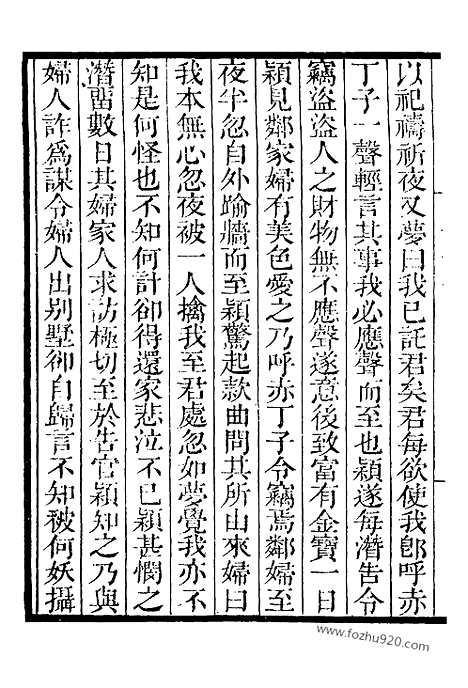 以祀禱祈夜又夢曰我已託君矣君每欲使我卽呼赤
丁子一聲輕言其事我必應聲而至也穎遂每潛告令
竊盜盜人之財物無不應聲遂意後致富有金寶一日
穎見鄰家婦有美色愛之乃呼赤丁子令竊焉鄰婦至
夜半忽自外踰牆而至穎驚起款曲問其所由來婦曰
我本無心忽夜被一人擒我至君處忽如夢覺我亦不
知是何怪也不知何計卻得還家悲泣不已穎甚憫之
潛留數日其婦家人求訪極切至於告官穎知之乃與
婦人詐爲謀令婦人出别墅卻自歸言不知被何妖攝
www.fozhu920.com